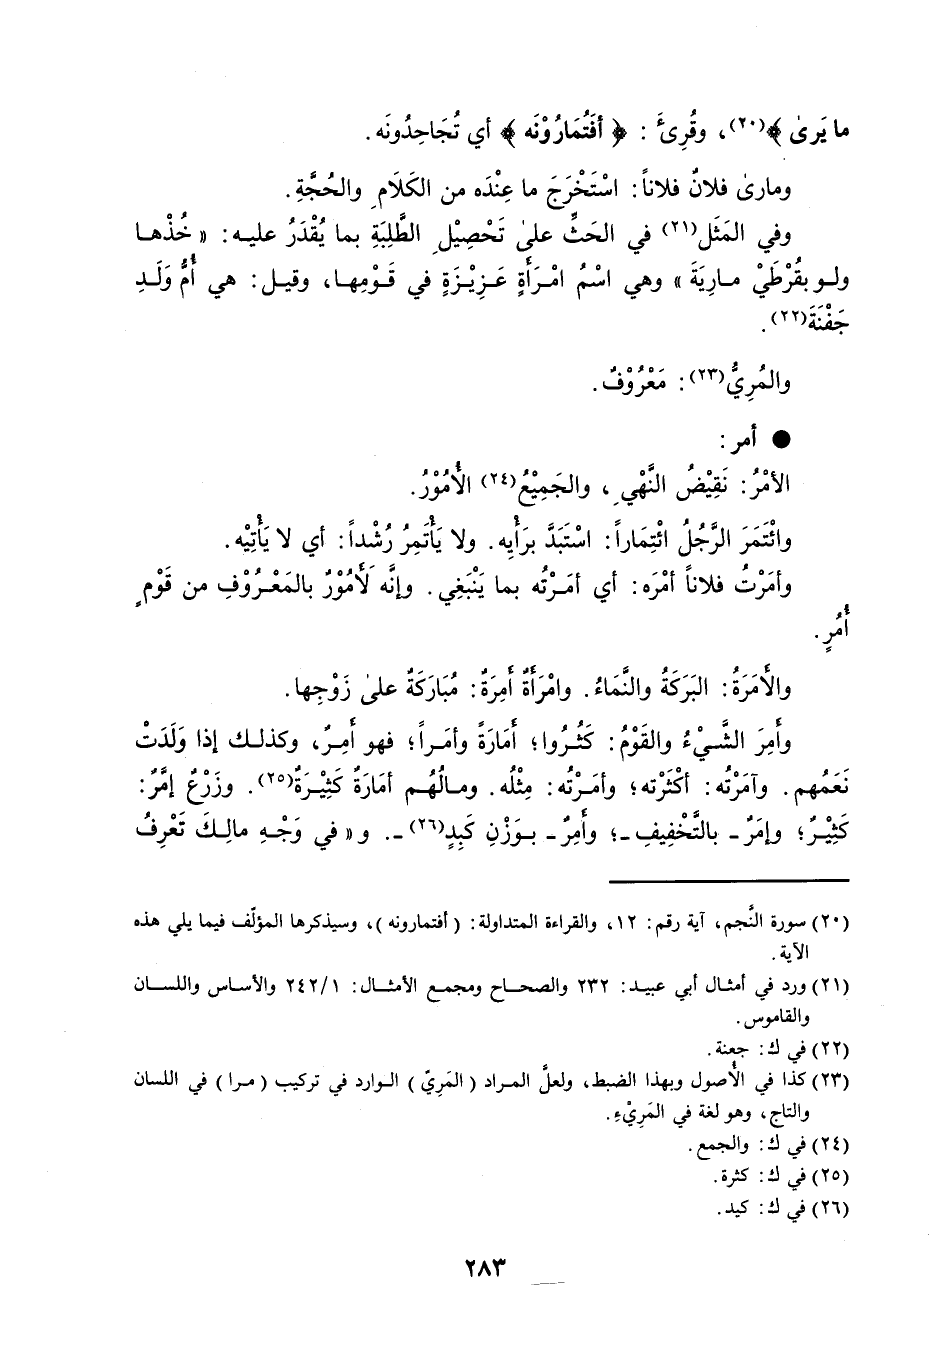 ما يَرىٰ ﴾(٢٠)، وقُرِئَ : ﴿ أفَتُمَارُوْنَه ﴾ أي تُجَاحِدُونَه.
ومارىٰ فلانٌ فلاناً: اسْتَخْرَجَ ما عِنْدَه من الكَلَامِ والحُجَّةِ.
وفي المَثَل(٢١) في الحَثِّ علىٰ تَحْصِيْلِ الطَّلِبَةِ بما يُقْدَرُ عليه: « خُذْها
ولو بقُرْطَيْ مارِيَةَ » وهي اسْمُ امْرَأَةٍ عَزِيْزَةٍ في قَوْمِها، وقيل: هي أُمُّ وَلَدِ
جَفْنَةَ(٢٢).
والمُرِيُّ(٢٣): مَعْرُوْفٌ.
● أمر:
الأمْرُ: نَقِيْضُ النَّهْيِ، والجَمِيْعُ(٢٤) الأُمُوْرُ.
وائْتَمَرَ الرَّجُلُ ائْتِماراً: اسْتَبَدَّ برَأْيِه. ولا يَأْتَمِرُ رُشْداً: أي لا يَأْتِيْه.
وأمَرْتُ فلاناً أمْرَه: أي أمَرْتُه بما يَنْبَغِي. وإنَّه لَأَمُوْرٌ بالمَعْرُوْفِ من قَوْمٍ
أُمُرٍ.
والأَمَرَةُ: البَرَكَةُ والنَّمَاءُ. وامْرَأَةٌ أَمِرَةٌ: مُبَارَكَةٌ علىٰ زَوْجِها.
وأَمِرَ الشَّيْءُ والقَوْمُ: كَثُرُوا؛ أمَارَةً وأمَراً؛ فهو أَمِرٌ، وكذلك إذا وَلَدَتْ
نَعَمُهم. وآمَرْتُه: أكْثَرْته؛ وأمَرْتُه: مِثْلُه. ومالُهُم أمَارَةٌ كَثِيْرَةٌ(٢٥). وزَرْعٌ إمَّرٌ:
كَثِيْرٌ؛ وإمَرٌ ـ بالتَّخْفِيفِ ـ؛ وأَمِرٌ ـ بوَزْنِ كَبِدٍ(٢٦) ـ. و« في وَجْهِ مالِكَ تَعْرِفُ
(٢٠) سورة النَّجم، آية رقم: ١٢، والقراءة المتداولة: ( أفتمارونه )، وسيذكرها المؤلّف فيما يلي هذه
الآية.
(٢١) ورد في أمثال أبي عبيد: ٢٣٢ والصحاح ومجمع الأمثال: ٢٤٢/١ والأساس واللسان
والقاموس.
(٢٢) في ك: جعنة.
(٢٣) كذا في الأُصول وبهذا الضبط، ولعلَّ المراد ( المَرِيّ ) الوارد في تركيب ( مرا ) في اللسان
والتاج، وهو لغة في المَرِيْءِ.
(٢٤) في ك: والجمع.
(٢٥) في ك: كثرة.
(٢٦) في ك: كيد.
٢٨٣